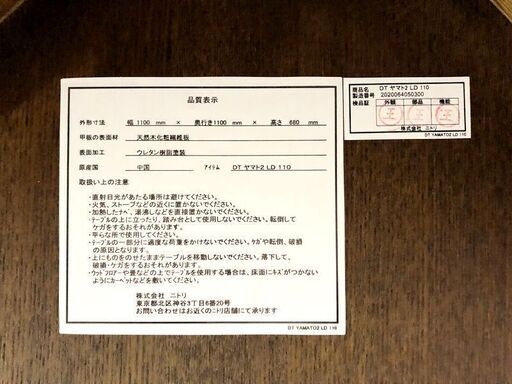 品質表示
外形寸法 幅 1100 mm × 奥行き1100 mm × 高さ 680 mm
甲板の表面材 天然木化粧繊維板
表面加工 ウレタン樹脂塗装
原産国 中国 アイテム DT ヤマト2 LD 110
取扱い上の注意
・直射日光があたる場所は避けてください。
・火気、ストーブなどの近くに置かないでください。
・加熱したナベ、湯沸しなどを直接置かないでください。
・テーブルの上に立ったり、踏み台として使用しないでください。転倒して
ケガをするおそれがあります。
・平らな所で使用してください。
・テーブルの一部分に過度な荷重をかけないでください。ケガや転倒、破損
の原因となります。
・上にものをのせたままテーブルを移動しないでください。落下して、
破損・ケガをするおそれがあります。
・ウッドフロアーや畳などの上でテーブルを使用する場合は、床面にキズがつかない
ようにカーペットなどを敷いてください。
株式会社 ニトリ
東京都北区神谷3丁目6番20号
お問い合わせはお近くのニトリ店舗にて承ります
DT YAMATO2 LD 110
商品名 DT ヤマト2 LD 110
製造番号 2020064050300
検品証 外観 部品 機能
株式会社 ニトリ
DT YAMATO2 LD 110